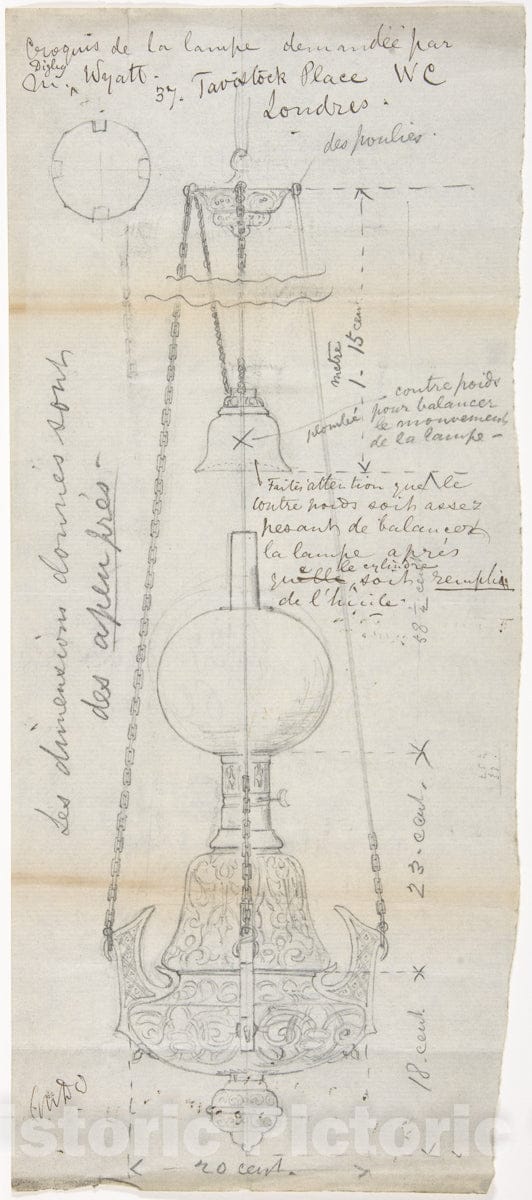 Croquis de la lampe demandée par
M. Digby Wyatt.
37. Tavistock Place WC
Londres.
des poulies.
metre
1 - 15 cent
contre poids
pour balancer
le mouvement
de la lampe -
plombié
Faites attention que le
contre poids soit assez
pesant de balancer
la lampe après
que le cylindre
soit remplie
de l'huile.
38 ½ cent
Les dimensions donnés sont
des apeuprés -
23 - cent.
18 - cent
- 20 cent. -
Historic Pictoric